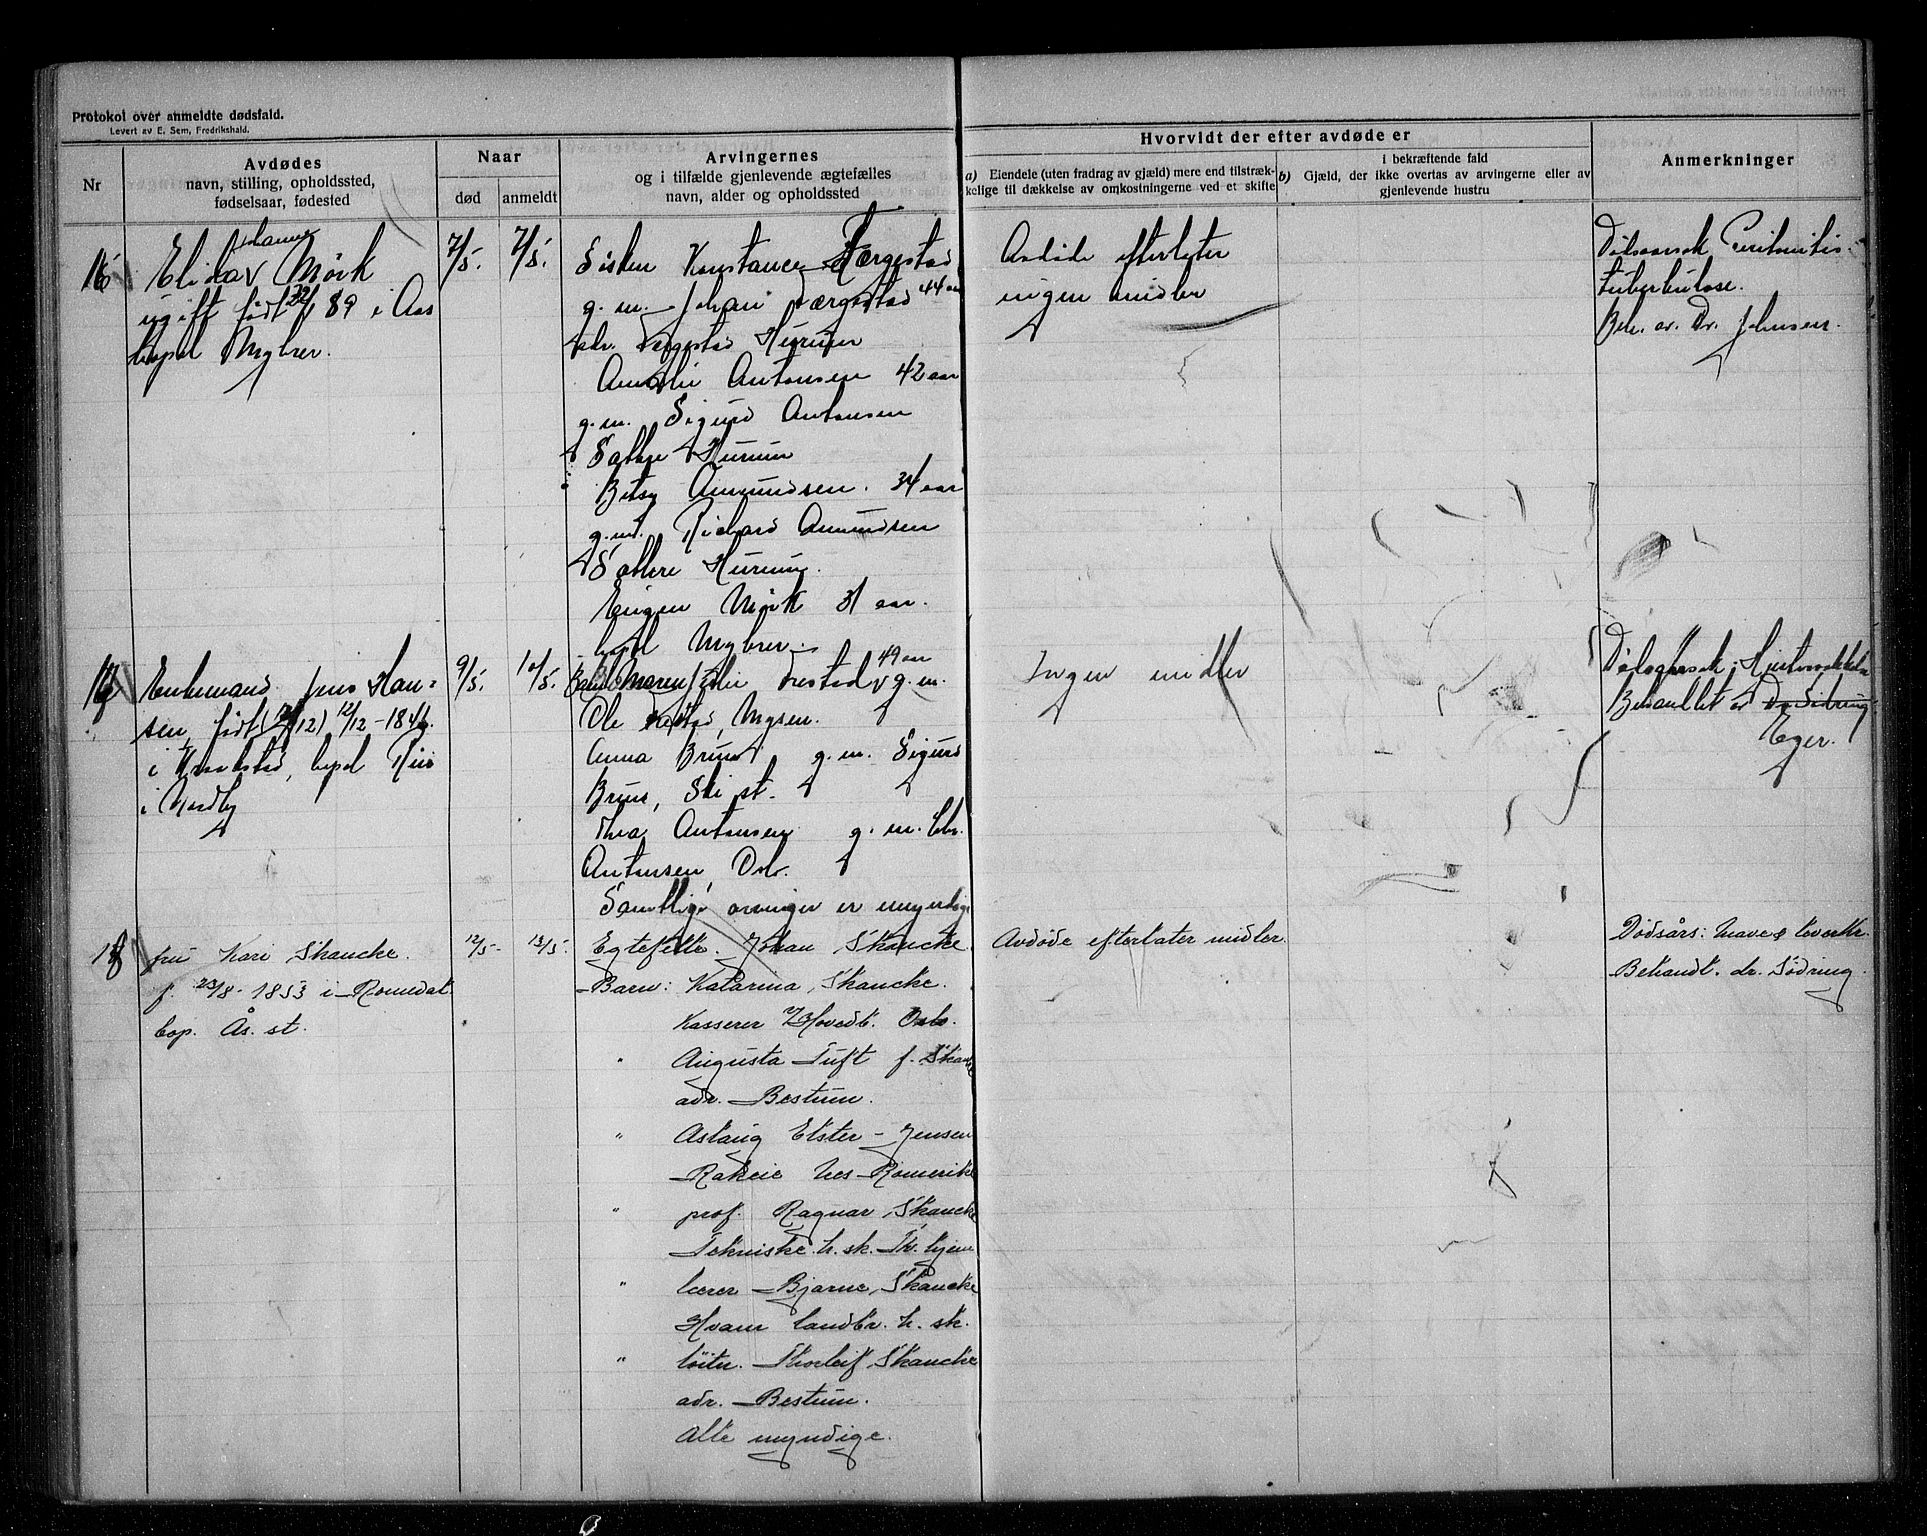 Protokol over anmeldte dødsfald.
Levert av E. Sem, Fredrikshald.
Nr
Avdødes
navn, stilling, opholdssted,
fødselsaar, fødested
Naar
død
anmeldt
Arvingernes
og i tilfælde gjenlevende ægtefælles
navn, alder og opholdssted
Hvorvidt der efter avdøde er
a) Eiendele (uten fradrag av gjæld) mere end tilstræk-
kelige til dækkelse av omkostningerne ved et skifte
i bekræftende fald
b) Gjæld, der ikke overtas av arvingerne eller av
gjenlevende hustru
Anmerkninger
16
Johanne
Elida Mörk
ugift født 89 i Aas
bopæl Mysen.
7/5.
7/5.
Søsken Konstance Færgestad
g. m. Johan Færgestad 44 aar
adr. Færgestad Hurum
Amalie Antonsen 42 aar
g. m. Sigurd Antonsen
Sætre Hurum
Betsy Amundsen. 34 aar
g. m. Richard Amundsen
Sætre Hurum.
Eugen Mörk 31 aar.
bopæl Mysen
Avdöde efterlater
ingen midler
Dödsaarsak Peritonitis
tuberkulose.
Beh. av. Dr. Johnsen.
17
Enkemand Jens Han-
sen, født 12/12-184
i Kraakstad, bopæl
i Nordby
9/5.
10/5.
Barn Maren 49 aar
g. m.
Ole Mysen.
Anna Bruus g. m. Sigurd
Bruus, Ski st.
Thea Antonsen g. m. Chr.
Antonsen, Oslo.
Samtlige arvinger er myndige
Ingen midler
Dödsaarsak: Hjerteonde
Behandlet av Dr Södring
Eger.
18
fru Kari Skancke.
f. 23/8-1853 i Romedal
bop. Ås. st.
12/5-
13/5.
Egtefelle. Johan Skancke.
Barn: Katarina Skancke.
Kasserer Hovedb. Oslo.
" Augusta Tuft f. Skancke
adr. Bestum.
" Aslaug Elster-Jensen
Rakeie Nes Romerike
" prof. Ragnar Skancke
Tekniske h. sk. Tr. hjem
" lærer Bjarne Skancke
Hvam landbr. h. sk.
" löitn. Thorleif Skancke
adr. Bestum.
Alle myndige.
Avdöde efterlater midler.
Dödsårs: Mave & leverkr.
Behandt. dr. Södring.